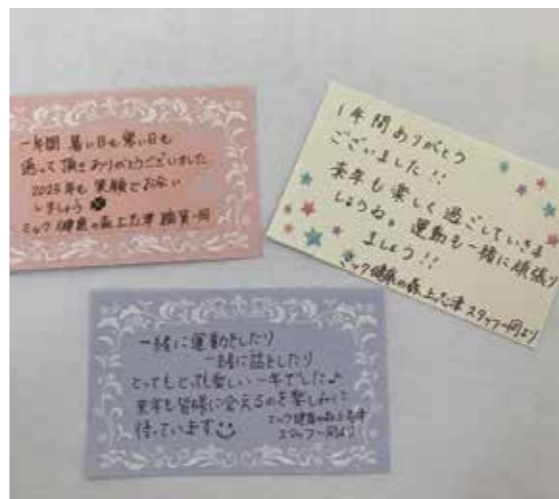 一年間 暑い日も寒い日も
通って頂きありがとうございました
2025年も 笑顔でお会い
しましょう
ミック健康の森上志津 職員一同
1年間ありがとう
ございました!!
来年も楽しく過ごしていきま
しょうね。運動も一緒に頑張り
ましょう!!
ミック健康の森上志津スタッフ一同より
一緒に運動をしたり
一緒に話をしたり
とってもとっても楽しい一年でした♪
来年も皆様に会えるのを楽しみに
待っています
ミック健康の森上志津
スタッフ一同より